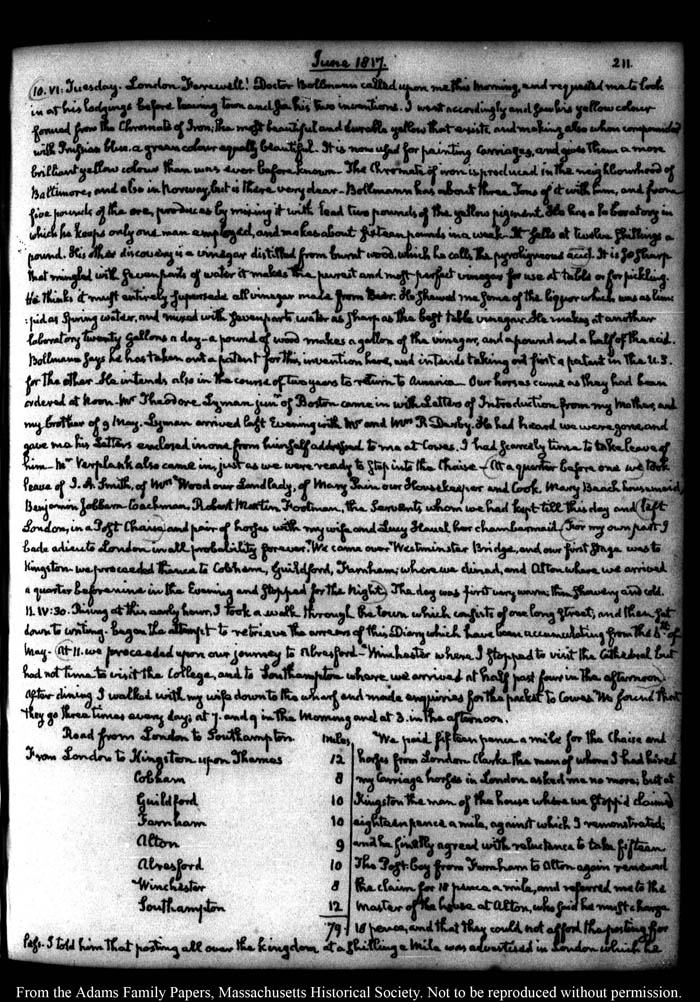 June 1817.
211
10. VI: Tuesday. London Farewell! Doctor Bollmann called upon me this Morning, and requested me to look
in at his lodgings before leaving town and see his two inventions. I went accordingly and saw his yellow colour
formed from the Chromate of Iron; the most beautiful and durable yellow that exists, and making also when compounded
with Prussian blue a green colour equally beautiful. It is now used for painting Carriages, and gives them a more
brilliant yellow colour than was ever before known. The Chromate of iron is produced in the neighbourhood of
Baltimore, and also in Norway, but is there very dear. Bollmann has about three Tons of it with him, and from
five pounds of the ore, produces by mixing it with lead two pounds of the yellow pigment. He has a laboratory in
which he keeps only one man employed, and makes about fifteen pounds in a week. It sells at twelve shillings a
pound. His other discovery is a vinegar distilled from burnt wood, which he calls the pyroligneous acid. It is so sharp
that mingled with seven parts of water it makes the purest and most perfect vinegar for use at table or for pickling.
He thinks it must entirely supersede all vinegar made from Beer. He shewed me some of the liquor which was as lim-
:pid as Spring water, and mixed with seven parts water as sharp as the best table vinegar. He makes at another
laboratory twenty Gallons a day—a pound of wood makes a gallon of the vinegar, and a pound and a half of the acid.
Bollmann says he has taken out a patent for this invention here, and intends taking out first a patent in the U.S.
for the other. He intends also in the course of two years to return to America— Our horses came as they had been
ordered at noon. Mr Theodore Lyman junr of Boston came in with Letters of Introduction from my Mother, and
my brother of 9 May. Lyman arrived last Evening with Mr and Mrs R. Darby. He had heard we were gone, and
gave me his Letters enclosed in one from himself addressed to me at Cowes. I had scarcely time to take leave of
him— Mr Verplank also came in, just as we were ready to step into the Chaise— At a quarter before one we took
leave of J. A. Smith, of Mrs Wood our Landlady, of Mary our Housekeeper and Cook, Mary Baach housemaid,
Benjamin Jobbern Coachman, Robert Martin Footman, the Servants whom we had kept till this day and left
London, in a Post Chaise and pair of horses with my wife and Lucy her chambermaid. For my own part I
bade adieu to London in all probability forever. We came over Westminster Bridge, and our first Stage was to
Kingston we proceeded thence to Cobham, Guildford, Farnham; where we dined, and Alton where we arrived
a quarter before nine in the Evening and stopped for the Night. The day was first very warm; then showery and cold.
11. IV:30. Rising at this early hour, I took a walk through the town which consists of one long Street; and then sat
down to writing. Began the attempt to retrieve the arrears of this Diary which have been accumulating from the 8th of
May. At 11. we proceeded upon our journey to Alresford—Winchester where I stopped to visit the Cathedral but
had not time to visit the College, and to Southampton where we arrived at half past four in the afternoon.
After dining I walked with my wife down to the wharf and made enquiries for the packet to Cowes. We found that
they go three times every day; at 7. and 9 in the Morning and at 3. in the afternoon.
Road from London to Southampton miles
From London to Kingston upon Thames 12
Cobham 8
Guildford 10
Farnham 10
Alton 9
Alresford 10
Winchester 8
Southampton 12
79
We paid fifteen pence a mile for the Chaise and
horses from London. Clarke the man of whom I had hired
my carriage horses in London asked me no more; but at
Kingston the man of the house where we stopp'd claimed
eighteen pence a mile, against which I remonstrated;
and he finally agreed with reluctance to take fifteen
The Post-boy from Farnham to Alton again renewed
the claim for 18 pence a mile, and referred me to the
Master of the house at Alton, who said he must charge
18 pence, and that they could not afford the posting for
less. I told him that posting all over the kingdom at a shilling a mile was advertised in London which he
From the Adams Family Papers, Massachusetts Historical Society. Not to be reproduced without permission.